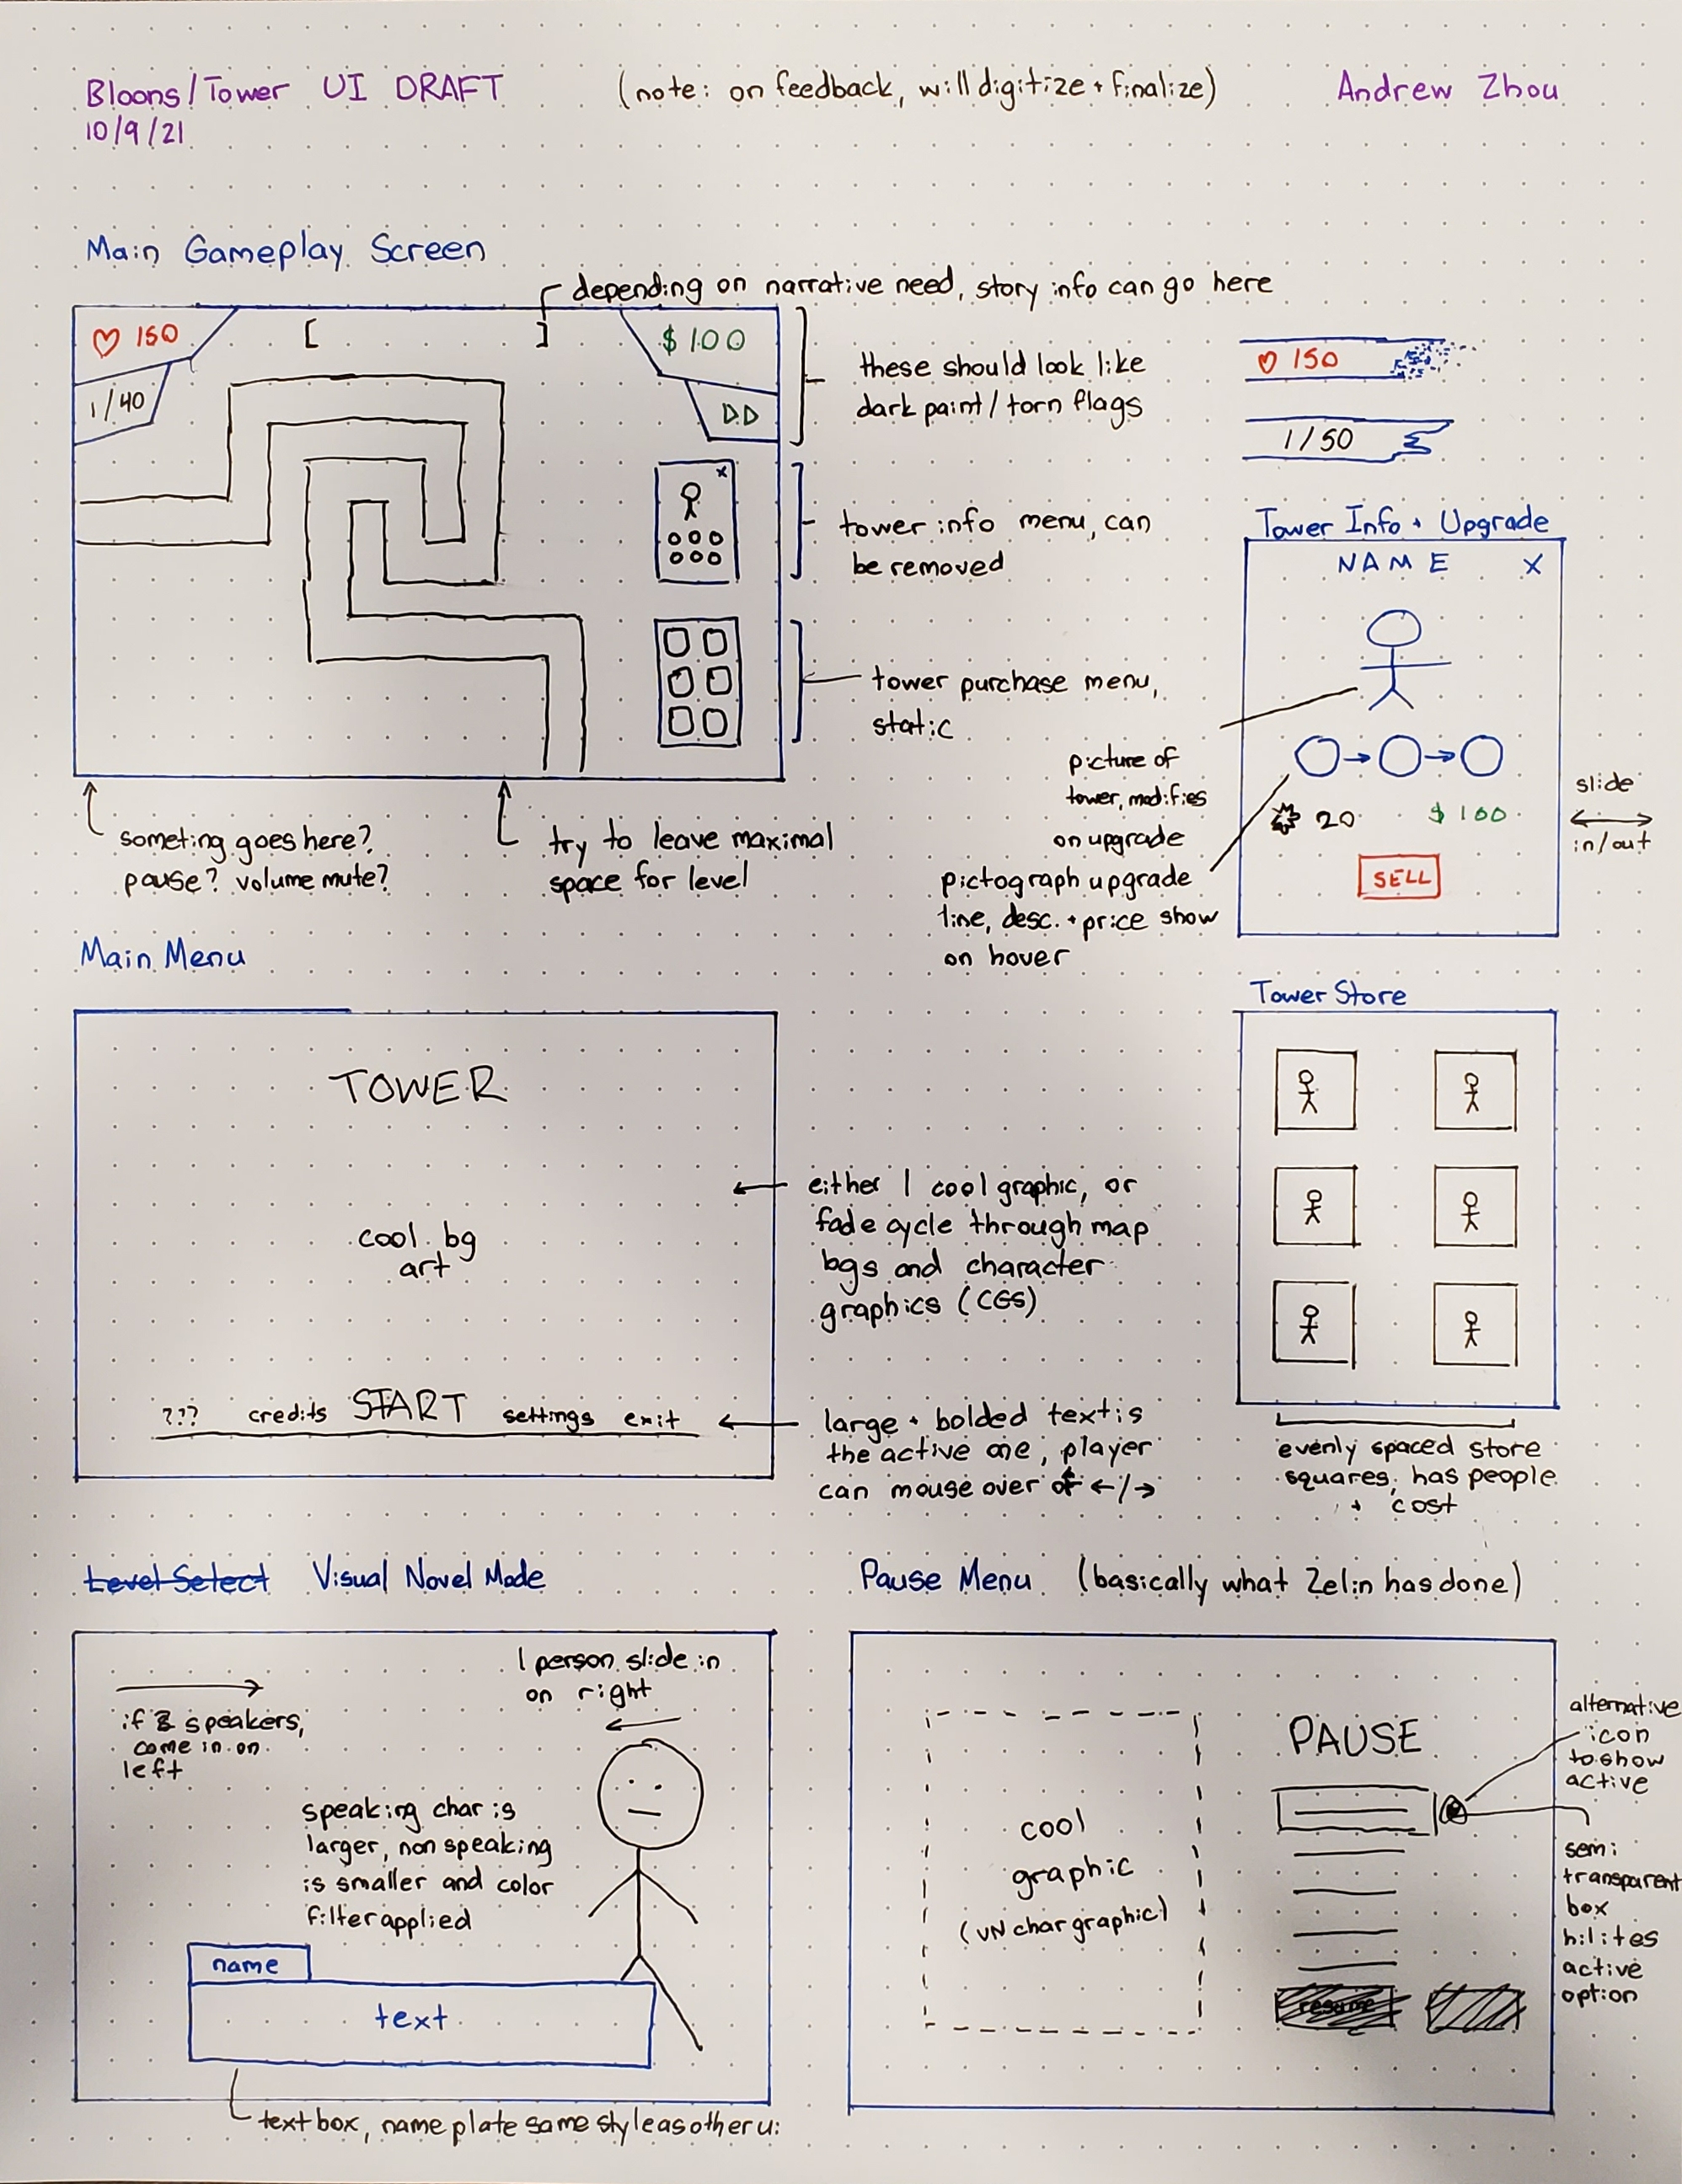 Bloons/Tower UI DRAFT
(note: on feedback, will digitize + finalize)
Andrew Zhou
10/9/21
Main Gameplay Screen
depending on narrative need, story info can go here
♡ 150
[ ]
$ 100
1/40
▷▷
these should look like
dark paint/torn flags
♡ 150
1/50
x
tower info menu, can
be removed
tower purchase menu,
static
someting goes here?
pause? volume mute?
try to leave maximal
space for level
Tower Info + Upgrade
NAME X
picture of
tower, modifies
on upgrade
pictograph upgrade
line, desc. + price show
on hover
20 $ 100
SELL
slide
in/out
Main Menu
TOWER
cool bg
art
??? credits START settings exit
either 1 cool graphic, or
fade cycle through map
bgs and character
graphics (CGS)
large + bolded text is
the active one, player
can mouse over or ←/→
Tower Store
evenly spaced store
squares, has people
+ cost
Level Select Visual Novel Mode
1 person slide in
on right
if 2 speakers,
come in on
left
speaking char is
larger, non speaking
is smaller and color
filter applied
name
text
text box, name plate same style as other ui
Pause Menu (basically what Zelin has done)
PAUSE
cool
graphic
(VN char graphic)
resume
alternative
icon
to show
active
semi
transparent
box
hilites
active
option